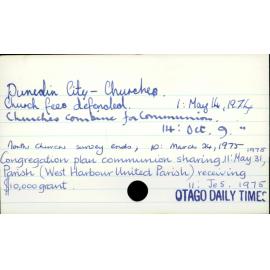 Dunedin City - Churches.
Church fees defended. 1: May 14, 1974
Churches combine for Communion.
14: Oct. 9. "
North Church survey ends, 10: March 24, 1975
Congregation plan communion sharing 11: May 31, 1975
Parish (West Harbour United Parish) receiving
$10,000 grant. 11: 1975
OTAGO DAILY TIMES